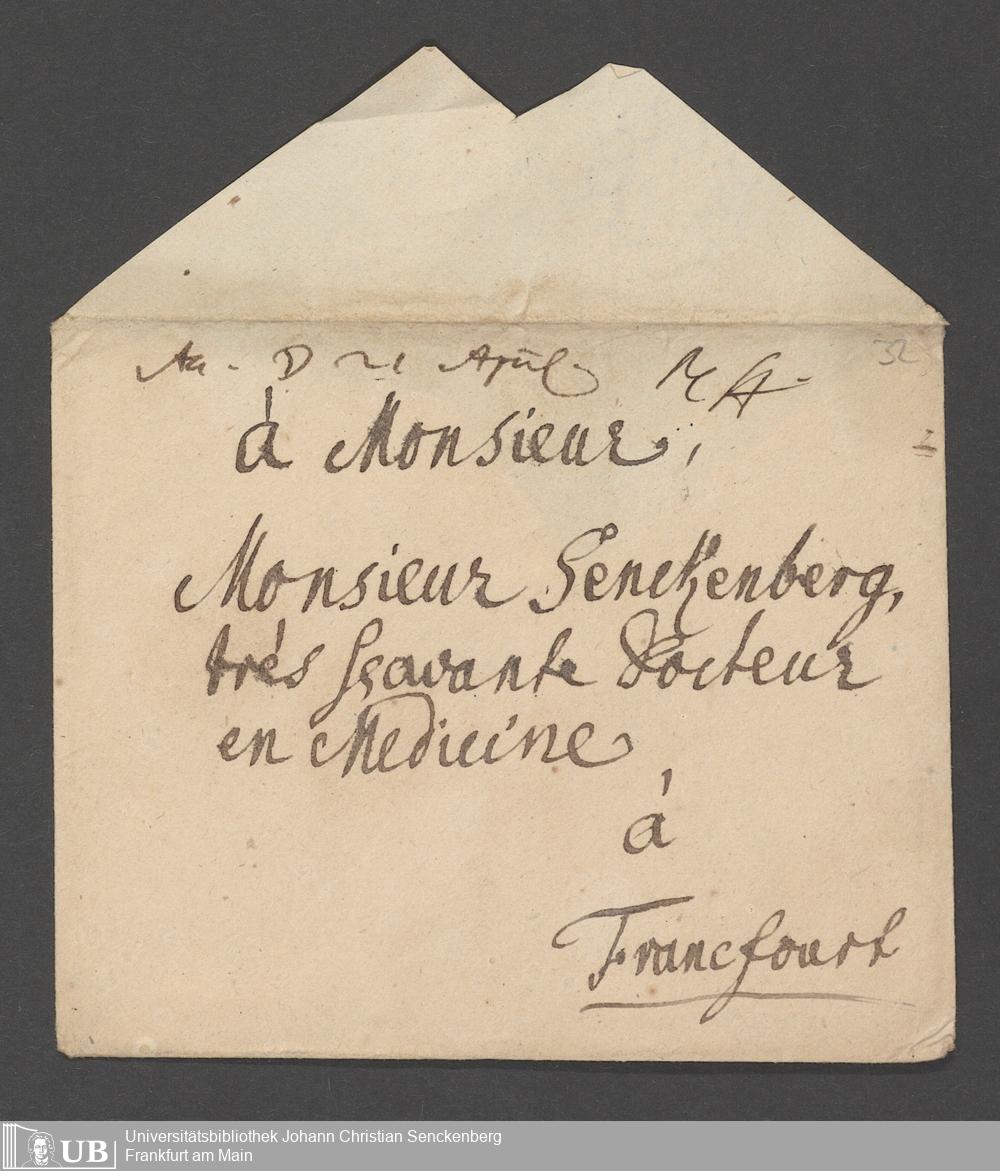 D 21 April.
32
à Monsieur,
Monsieur Senckenberg,
trés sçavante Docteur
en Medicine
á
Francfourt
UB
Universitätsbibliothek Johann Christian Senckenberg
Frankfurt am Main